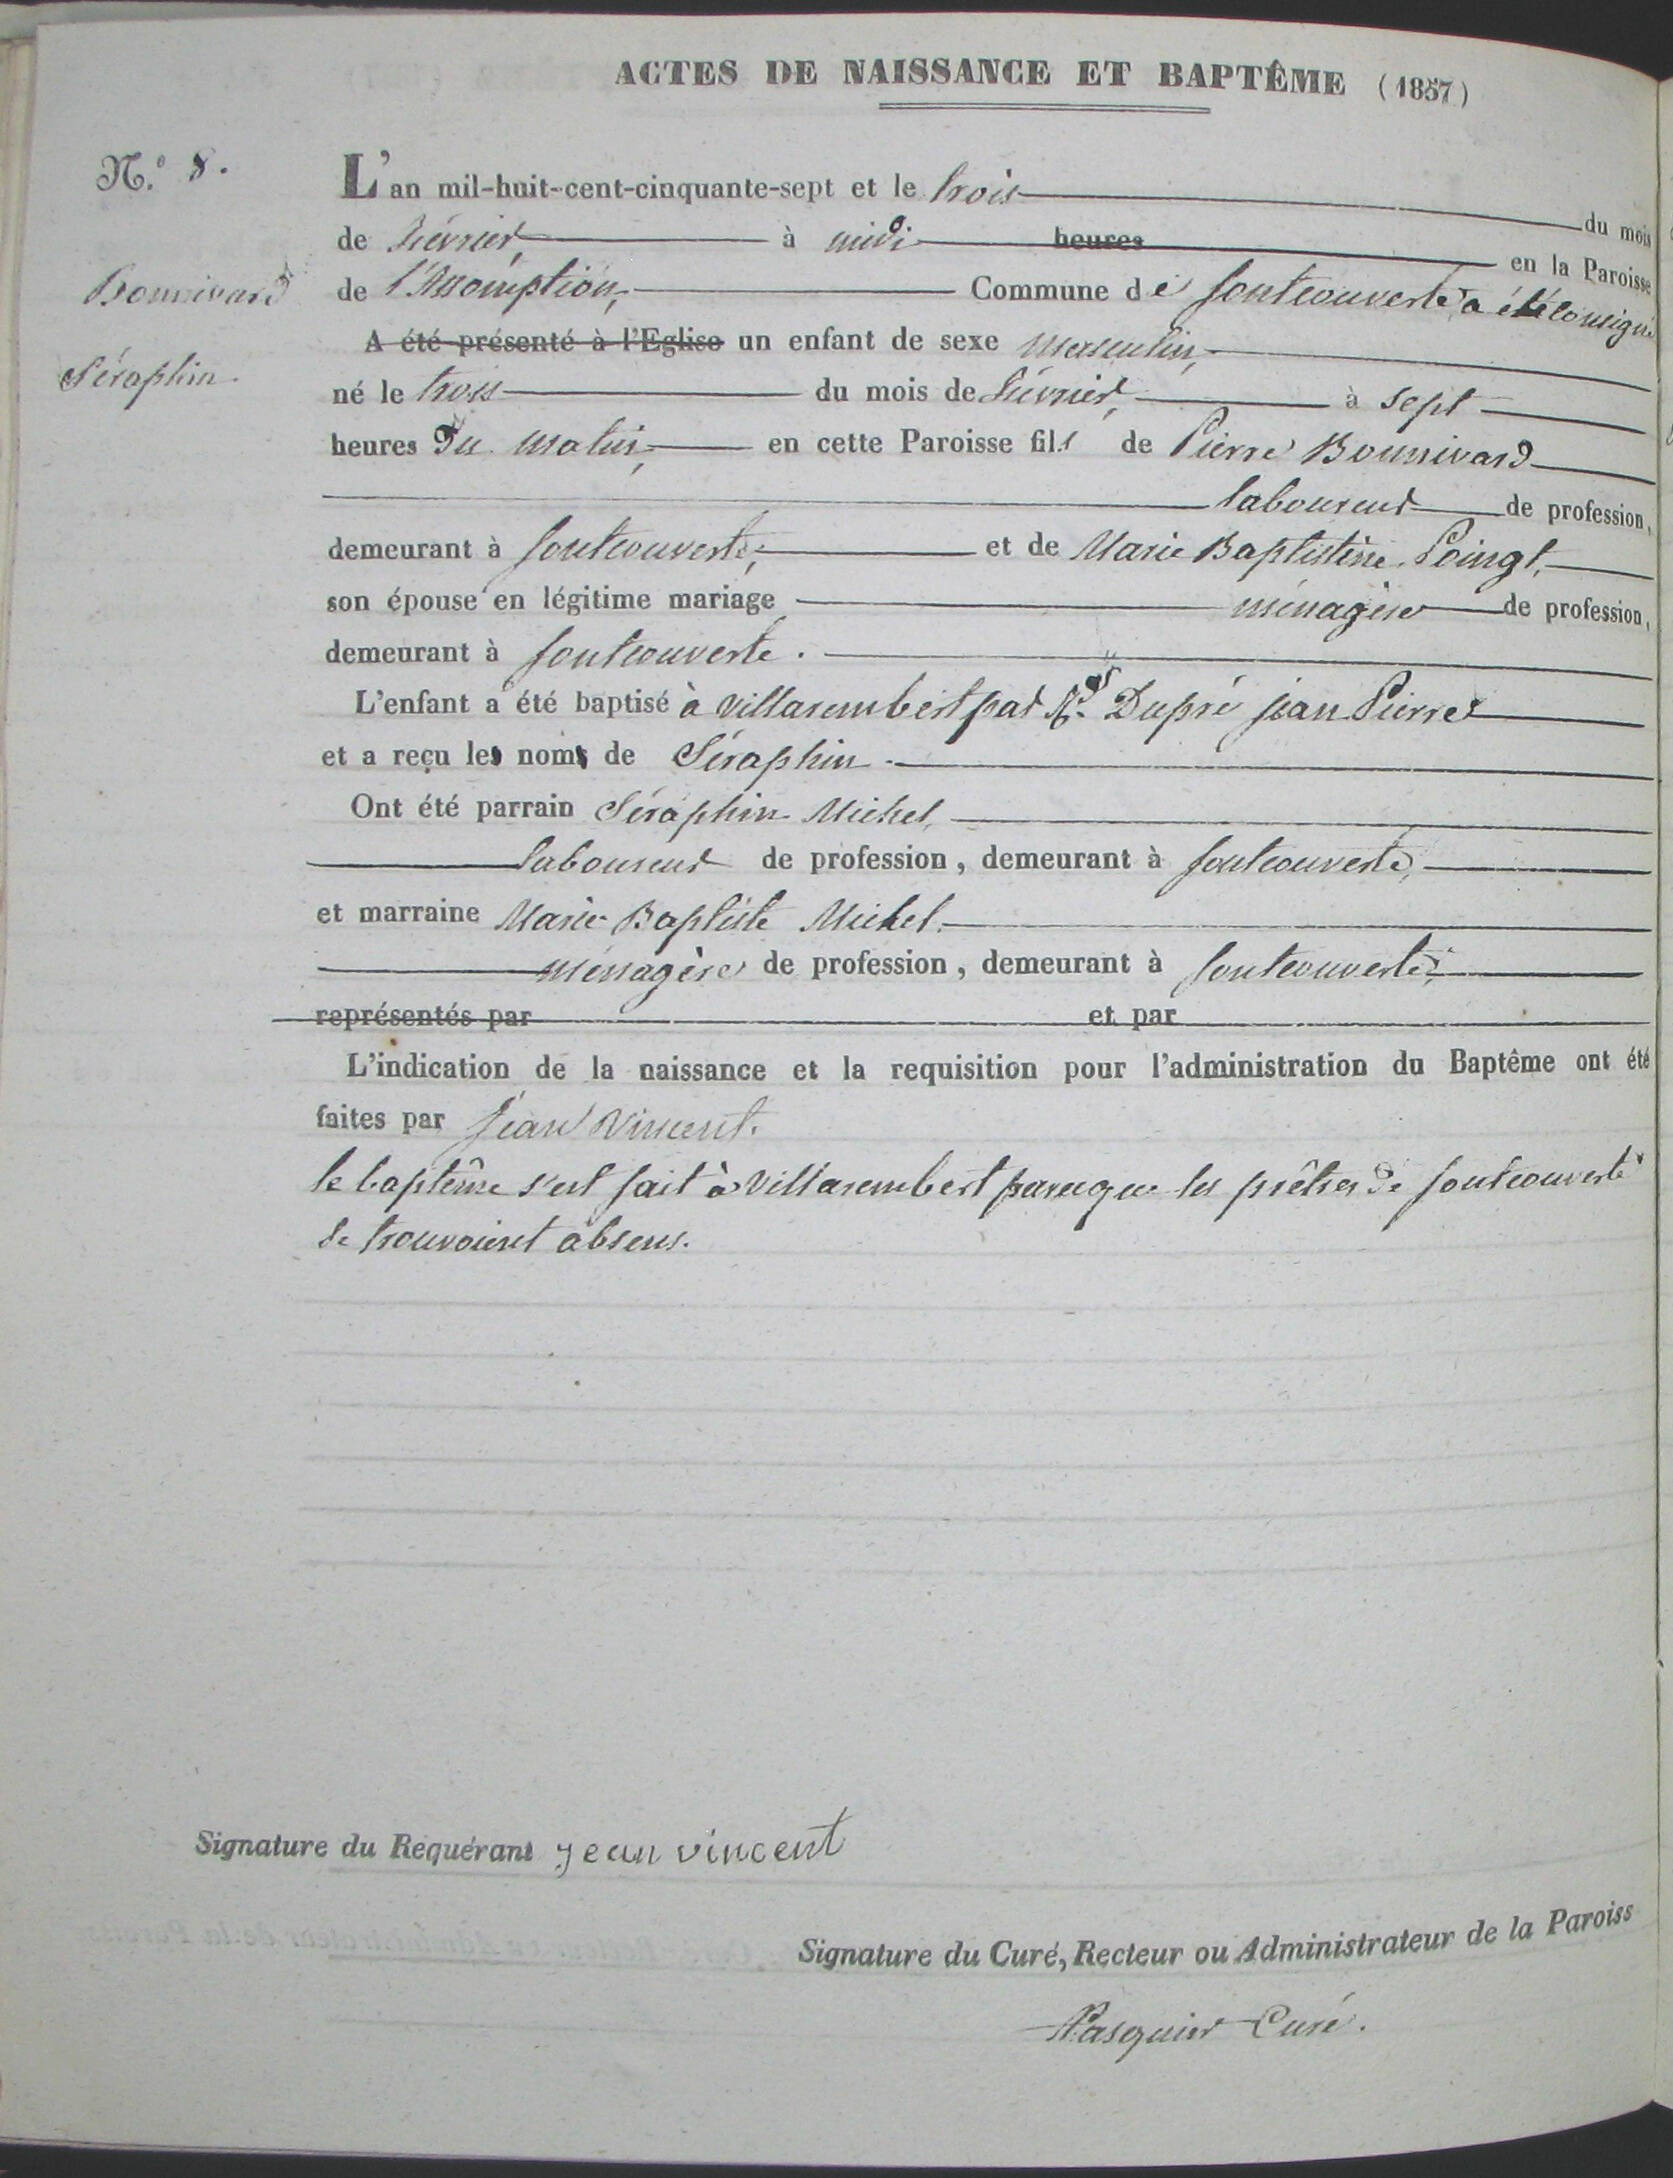 ACTES DE NAISSANCE ET BAPTÊME (1857)
N.º 8.
Bonnivard
Séraphin.
L'an mil-huit-cent-cinquante-sept et le trois du mois
de février, à midi heures en la Paroisse
de l'Assomption, Commune de fontcouverte a été consigné
A été présenté à l'Eglise un enfant de sexe masculin,
né le trois du mois de février, à sept
heures du matin, en cette Paroisse fils de Pierre Bonnivard
laboureur de profession,
demeurant à fontcouverte, et de Marie Baptistine Poingt,
son épouse en légitime mariage ménagère de profession,
demeurant à fontcouverte.
L'enfant a été baptisé à villarembert par Rd Dupré jean Pierre
et a reçu les noms de Séraphin.
Ont été parrain Séraphin Michel,
laboureur de profession, demeurant à fontcouverte,
et marraine Marie Baptiste Michel.
ménagère de profession, demeurant à fontcouverte,
représentés par et par
L'indication de la naissance et la requisition pour l'administration du Baptême ont été
faites par Jean Vincent.
le baptême s'est fait à villarembert parceque les prêtres de fontcouverte
se trouvoient absens.
Signature du Requérant jean vincent
Signature du Curé, Recteur ou Administrateur de la Paroiss
Pasquier Curé.